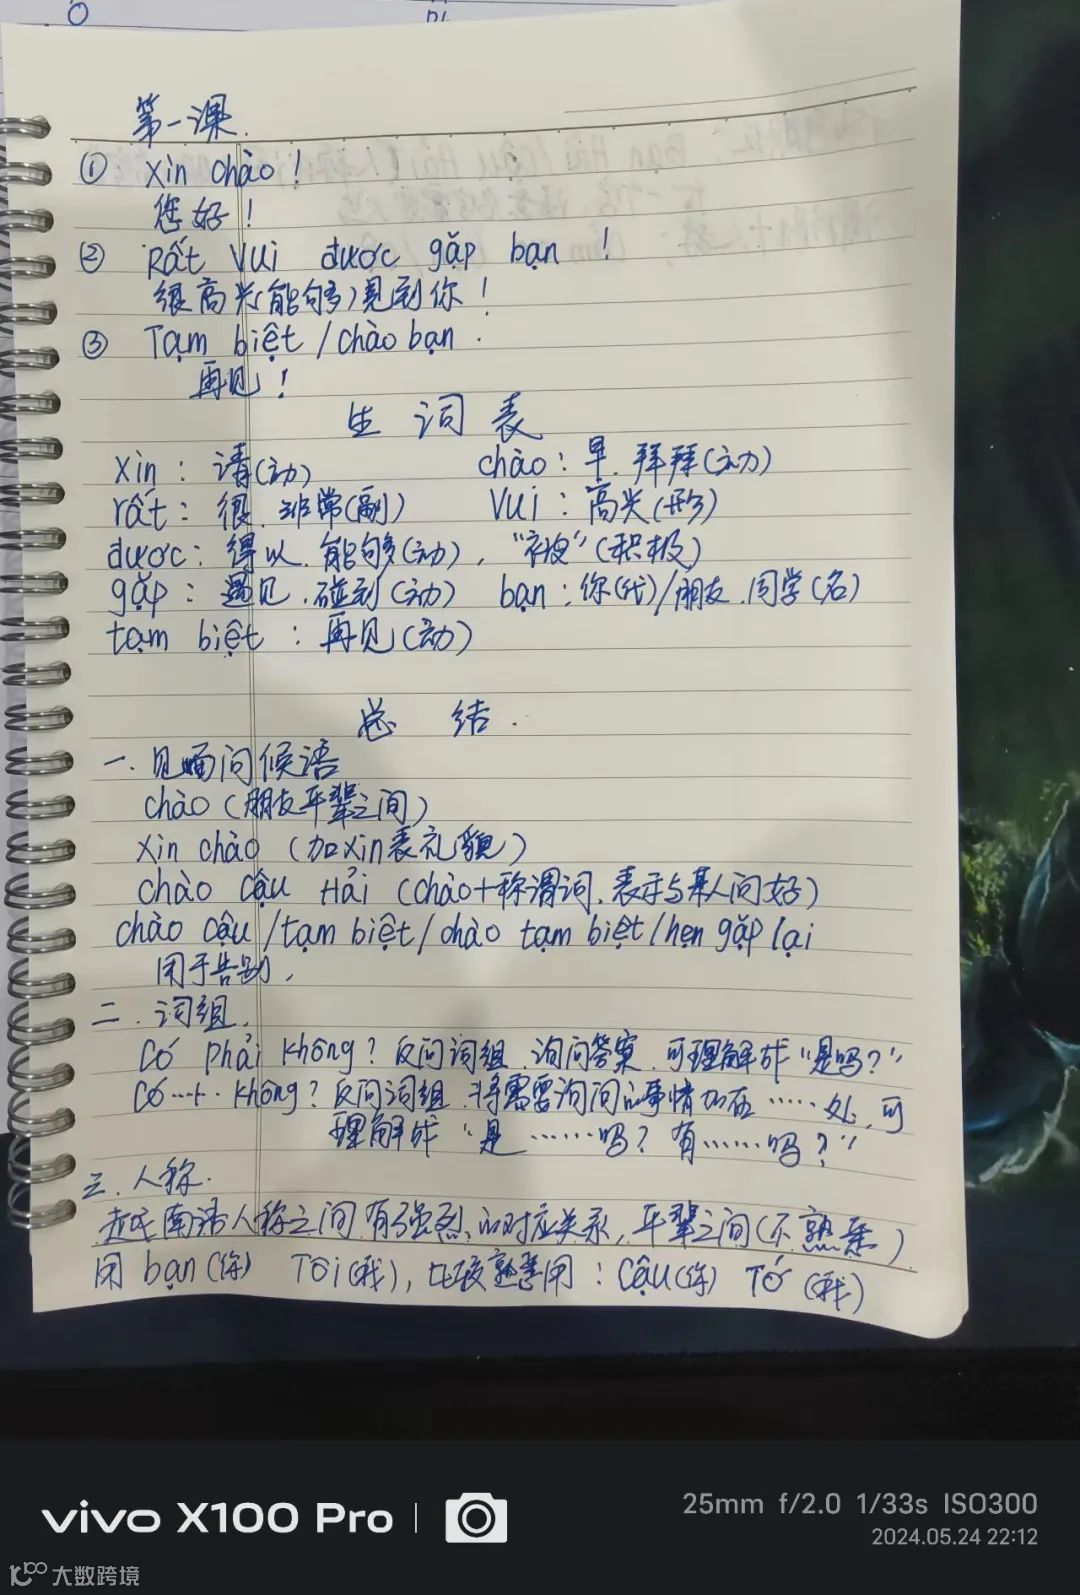 第一课.
① xin chào!
您好!
② Rất vui được gặp bạn !
很高兴(能够)见到你!
③ Tạm biệt /chào bạn .
再见!
生 词 表
xin : 请(动) chào : 早. 拜拜(动)
rất : 很. 非常(副) vui : 高兴(形)
được : 得以. 能够(动), "被"(积极)
gặp : 遇见. 碰到(动) bạn : 你(代)/朋友. 同学(名)
tạm biệt : 再见(动)
总 结 .
一. 见面问候语
chào (朋友平辈之间)
Xin chào (加xin表礼貌)
chào cậu Hải (chào+称谓词, 表示与某人问好)
chào cậu /tạm biệt/ chào tạm biệt /hẹn gặp lại
用于告别.
二. 词组.
Có phải không? 反问词组. 询问答案. 可理解成 "是吗?"
Có······ không? 反问词组. 将需要询问的事情加在 ······ 处, 可
理解成 "是 ······吗? 有······吗?"
三. 人称.
越南语人称之间有强烈的对应关系, 平辈之间(不熟悉)
用 bạn(你) Tôi(我), 比较熟悉用 : Cậu(你) Tớ (我)
vivo X100 Pro
25mm f/2.0 1/33s ISO300
2024.05.24 22:12
大数跨境